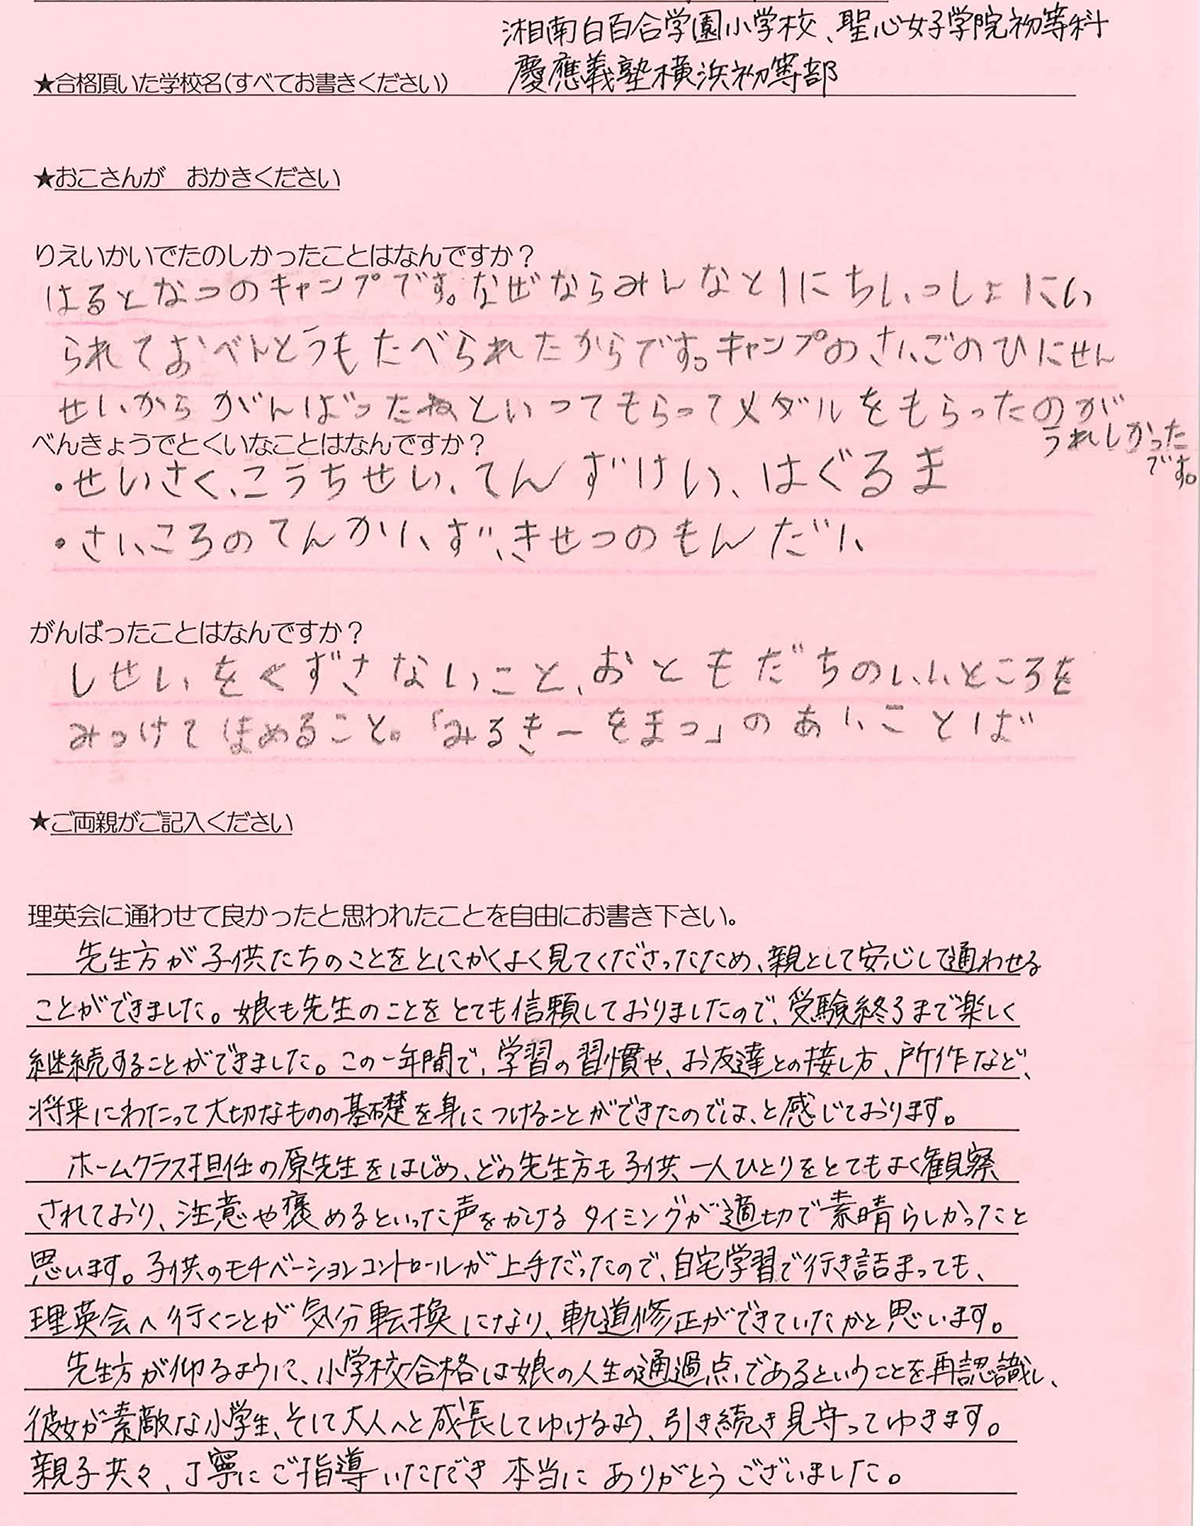 湘南白百合学園小学校、聖心女子学院初等科
★合格頂いた学校名(すべてお書きください) 慶應義塾横浜初等部
★おこさんが おかきください
りえいかいでたのしかったことはなんですか？
はるとなつのキャンプです。なぜならみんなと1にちいっしょにい
られておべんとうもたべられたからです。キャンプのさいごのひにせん
せいからがんばったねといってもらってメダルをもらったのが
うれしかった
です。
べんきょうでとくいなことはなんですか？
・せいさく、こうちせい、てんずけい、はぐるま
・さいころのてんかいず、きせつのもんだい、
がんばったことはなんですか？
しせいをくずさないこと、おともだちのいいところを
みつけてほめること。「みるきーをまつ」のあいことば
★ご両親がご記入ください
理英会に通わせて良かったと思われたことを自由にお書き下さい。
先生方が子供たちのことをとにかくよく見てくださったため、親として安心して通わせる
ことができました。娘も先生のことをとても信頼しておりましたので、受験終了まで楽しく
継続することができました。この一年間で、学習の習慣や、お友達との接し方、所作など、
将来にわたって大切なものの基礎を身につけることができたのでは、と感じております。
ホームクラス担任の原先生をはじめ、どの先生方も子供一人ひとりをとてもよく観察
されており、注意や褒めるといった声をかけるタイミングが適切で素晴らしかったと
思います。子供のモチベーションコントロールが上手だったので、自宅学習で行き詰まっても、
理英会へ行くことが気分転換になり、軌道修正ができていたかと思います。
先生方が仰るように、小学校合格は娘の人生の通過点であるということを再認識し、
彼女が素敵な小学生、そして大人へと成長してゆけるよう、引き続き見守ってゆきます。
親子共々、丁寧にご指導いただき本当にありがとうございました。